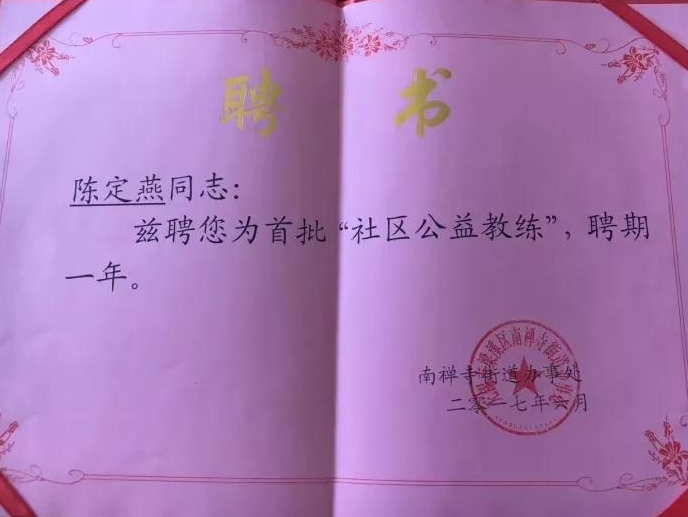 聘书
陈定燕同志：
兹聘您为首批“社区公益教练”，聘期
一年。
南禅寺街道办事处
二零一七年六月